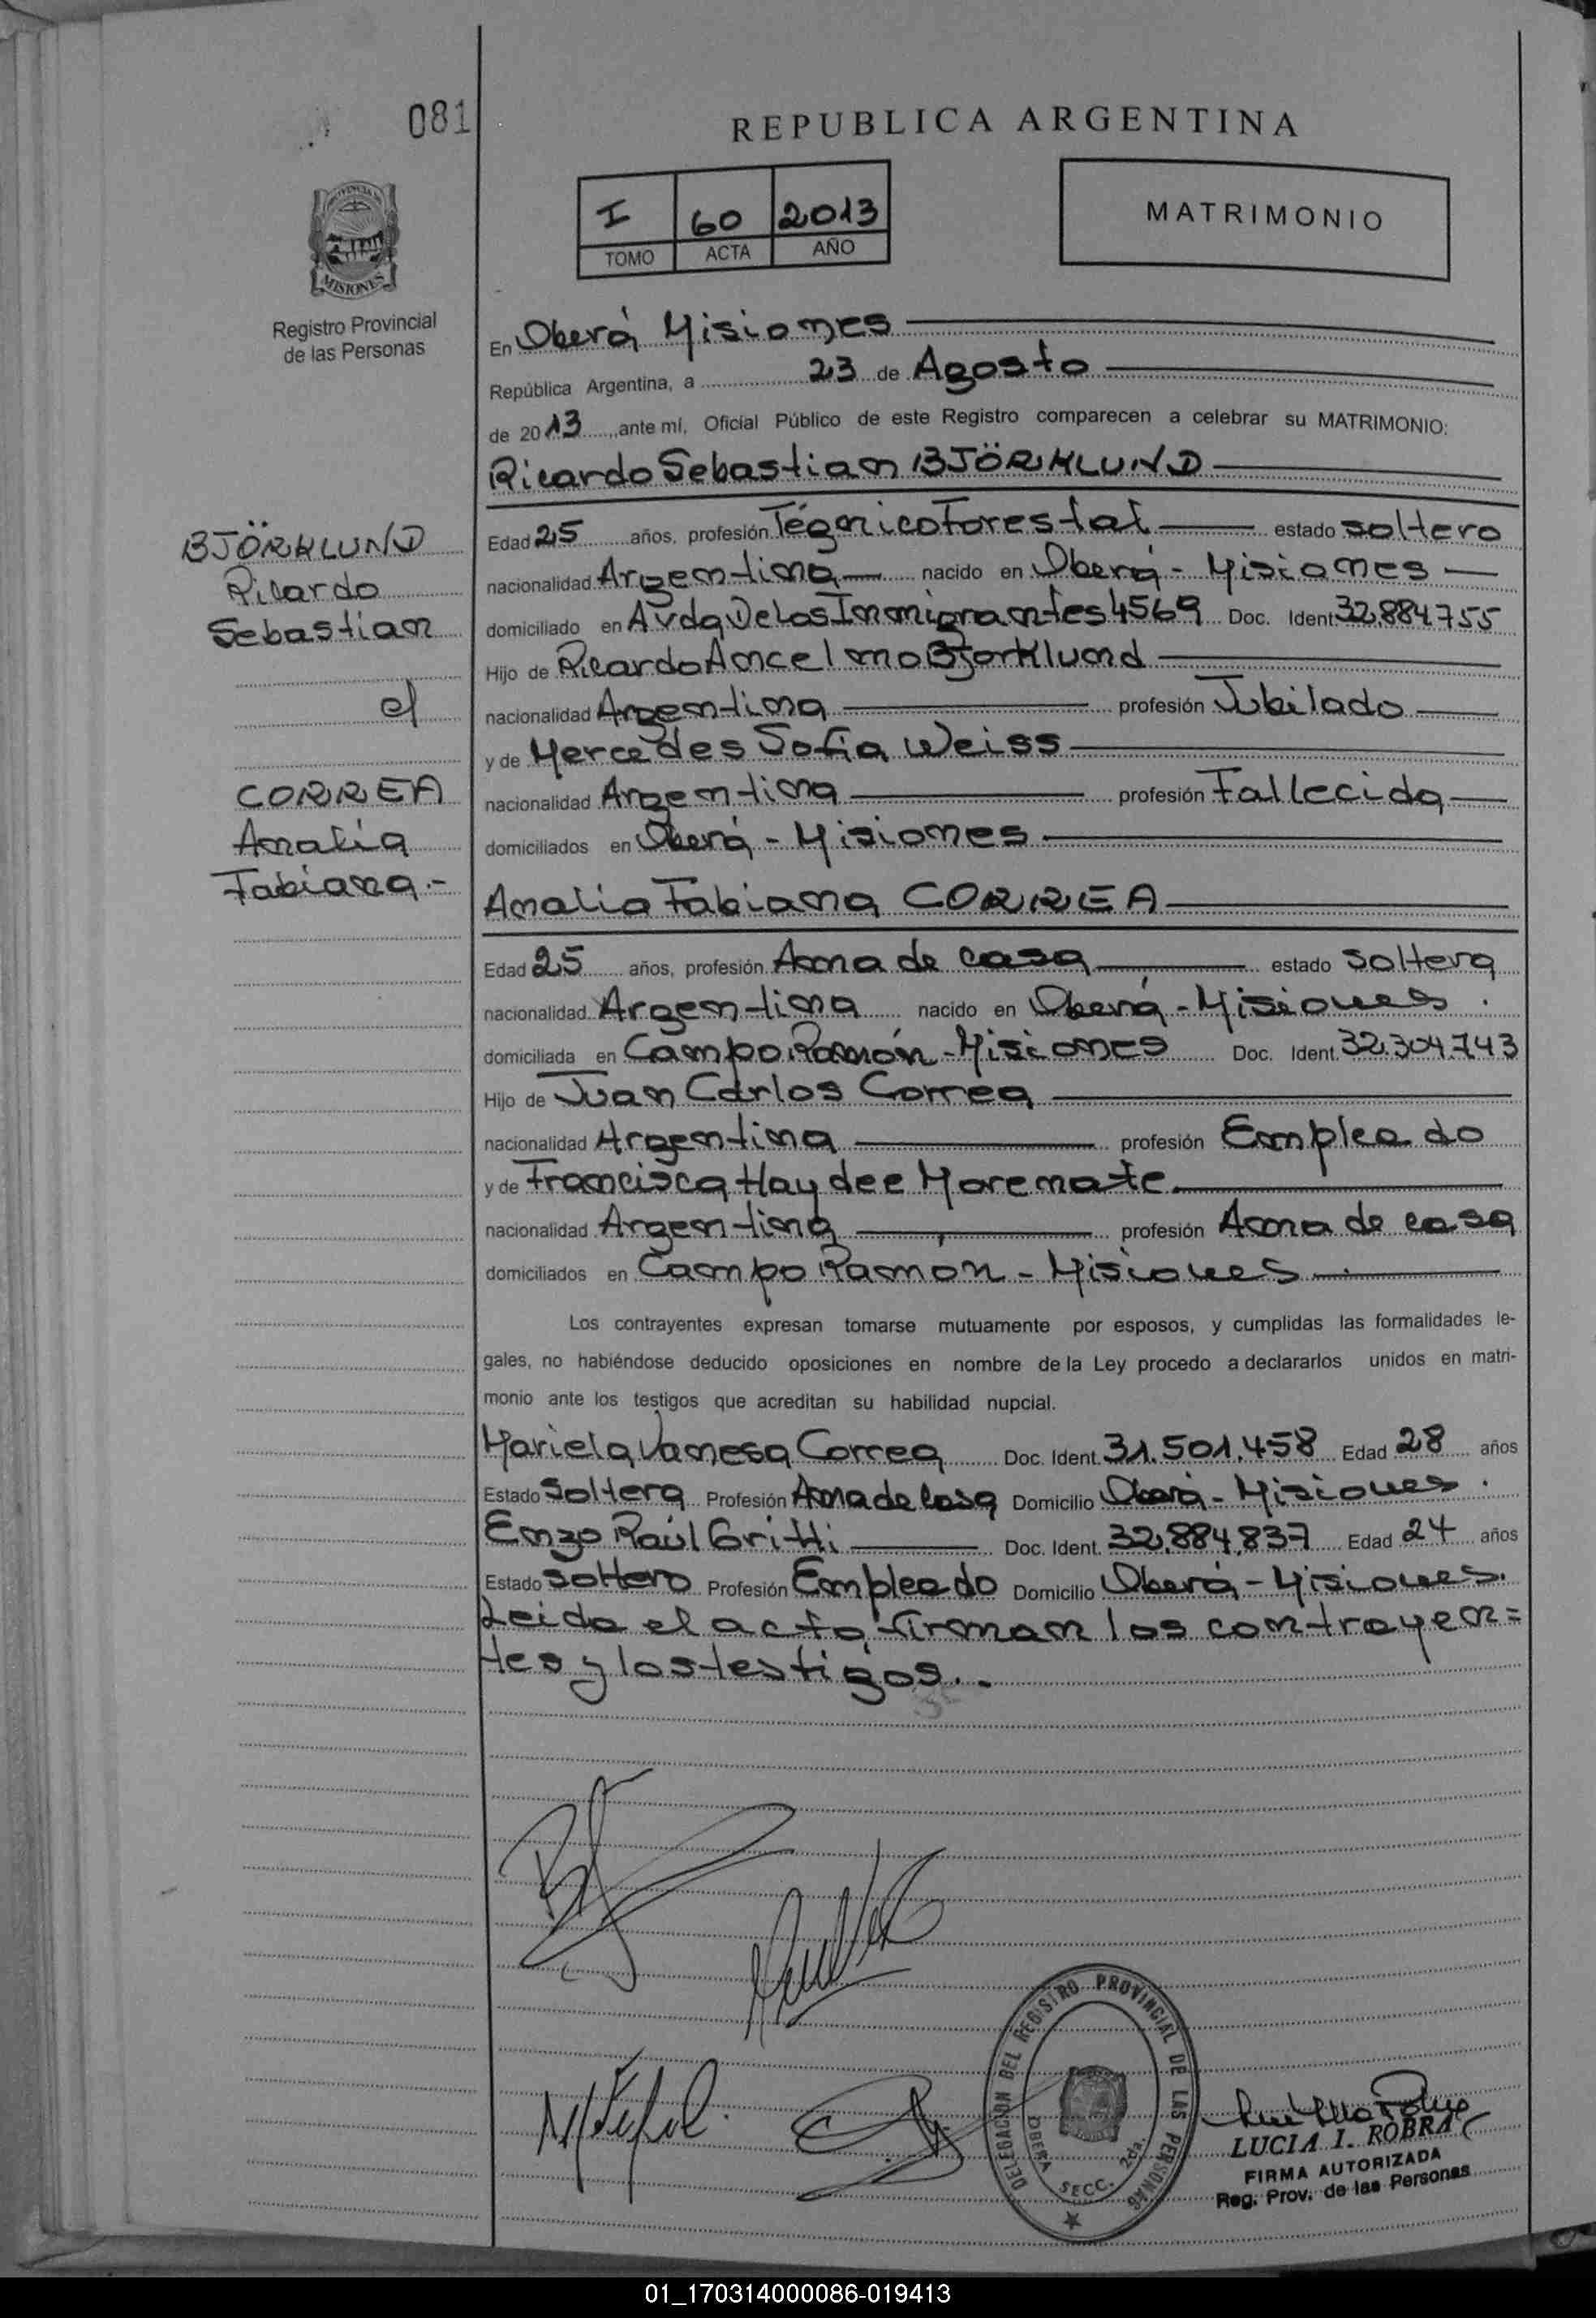 081
REPUBLICA ARGENTINA
I 60 2013
TOMO ACTA AÑO
MATRIMONIO
PROVINCIA
MISIONES
Registro Provincial
de las Personas
En Oberá Misiones
República Argentina, a 23 de Agosto
de 2013, ante mí, Oficial Público de este Registro comparecen a celebrar su MATRIMONIO:
Ricardo Sebastian BJÖRKLUND
BJÖRKLUND
Ricardo
Sebastian
c/
CORREA
Analia
Fabiana.-
Edad 25 años, profesión Tégnico Forestal estado soltero
nacionalidad Argentina nacido en Oberá - Misiones
domiciliado en Avda De Los Inmigrantes 4569 Doc. Ident. 32.884755
Hijo de Ricardo Ancelmo Bjorklund
nacionalidad Argentina profesión Jubilado
y de Mercedes Sofia Weiss
nacionalidad Argentina profesión Fallecida
domiciliados en Oberá - Misiones
Analia Fabiana CORREA
Edad 25 años, profesión Ama de casa estado soltera
nacionalidad Argentina nacido en Oberá - Misiones.
domiciliada en Campo Ramón - Misiones Doc. Ident. 32.304.743
Hijo de Juan Carlos Correa
nacionalidad Argentina profesión Empleado
y de Francisca Haydee Morenate.
nacionalidad Argentina profesión Ama de casa
domiciliados en Campo Ramón - Misiones
Los contrayentes expresan tomarse mutuamente por esposos, y cumplidas las formalidades le-
gales, no habiéndose deducido oposiciones en nombre de la Ley procedo a declararlos unidos en matri-
monio ante los testigos que acreditan su habilidad nupcial.
Mariela Vanesa Correa Doc. Ident. 31.501.458 Edad 28 años
Estado Soltera Profesión Ama de Casa Domicilio Oberá - Misiones.
Enzo Raúl Gritti Doc. Ident. 32.884.837 Edad 24 años
Estado soltero Profesión Empleado Domicilio Oberá - Misiones.
Leida el acta, firman los contrayen=
tes y los testigos..-
DELEGACION DEL REGISTRO PROVINCIAL DE LAS PERSONAS
OBERA SECC. 2da.
LUCIA I. ROBRA
FIRMA AUTORIZADA
Reg. Prov. de las Personas
01_170314000086-019413